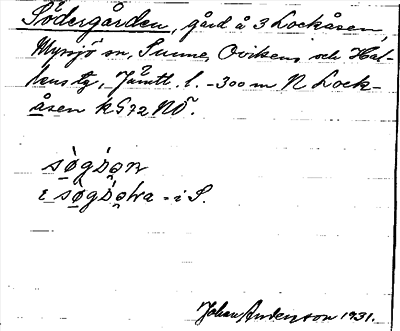 Södergården, gård å 3 Lockåsen,
Myssjö sn, Sunne, Ovikens och Hal-
lens tg, Jämtl. l. - 300 m N Lock-
åsen kG72NÖ.
i S.
Johan Anderson 1931.